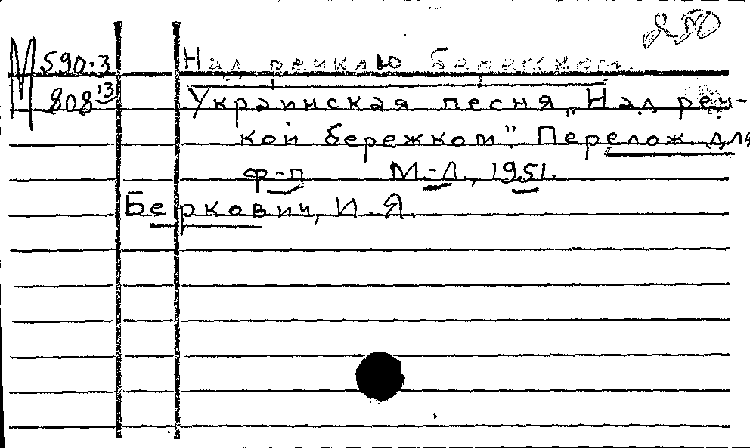 250
М 590.3 Над речкою бережком.
808 13 Украинская песня „Над реч-
кой бережком". Перелож. для
ф-п М.-Л., 1951.
Беркович, И. Я.